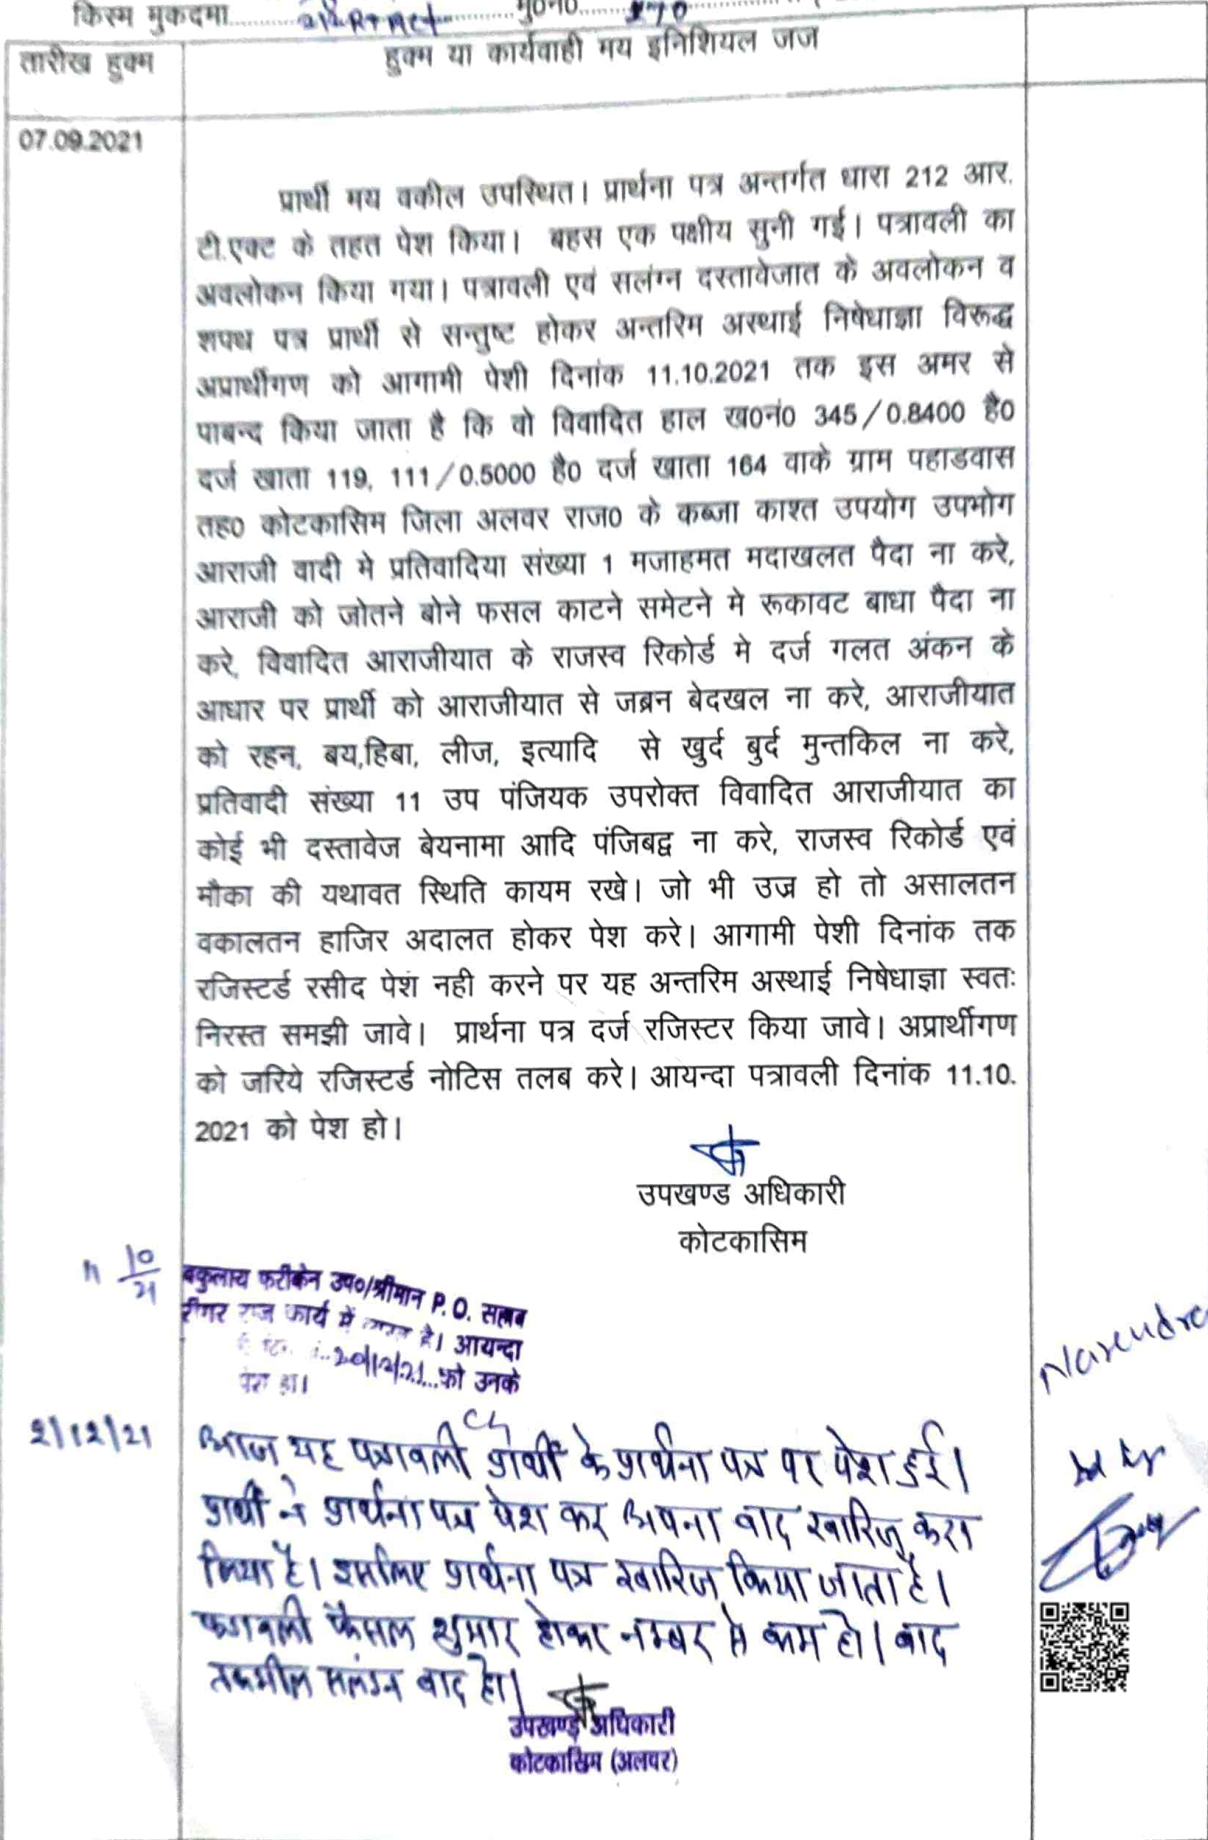 किस्म मुकदमा 212 R T Act मु0न0
तारीख हुक्म
हुक्म या कार्यवाही मय इनिशियल जज
07.09.2021
प्रार्थी मय वकील उपस्थित। प्रार्थना पत्र अन्तर्गत धारा 212 आर.
टी.एक्ट के तहत पेश किया। बहस एक पक्षीय सुनी गई। पत्रावली का
अवलोकन किया गया। पत्रावली एवं सलंग्न दस्तावेजात के अवलोकन व
शपथ पत्र प्रार्थी से सन्तुष्ट होकर अन्तरिम अस्थाई निषेधाज्ञा विरूद्ध
अप्रार्थीगण को आगामी पेशी दिनांक 11.10.2021 तक इस अमर से
पाबन्द किया जाता है कि वो विवादित हाल ख0नं0 345/0.8400 है0
दर्ज खाता 119, 111/0.5000 है0 दर्ज खाता 164 वाके ग्राम पहाडवास
तह0 कोटकासिम जिला अलवर राज0 के कब्जा काश्त उपयोग उपभोग
आराजी वादी मे प्रतिवादिया संख्या 1 मजाहमत मदाखलत पैदा ना करे,
आराजी को जोतने बोने फसल काटने समेटने मे रूकावट बाधा पैदा ना
करे, विवादित आराजीयात के राजस्व रिकोर्ड मे दर्ज गलत अंकन के
आधार पर प्रार्थी को आराजीयात से जब्रन बेदखल ना करे, आराजीयात
को रहन, बय,हिबा, लीज, इत्यादि से खुर्द बुर्द मुन्तकिल ना करे,
प्रतिवादी संख्या 11 उप पंजियक उपरोक्त विवादित आराजीयात का
कोई भी दस्तावेज बेयनामा आदि पंजिबद्व ना करे, राजस्व रिकोर्ड एवं
मौका की यथावत स्थिति कायम रखे। जो भी उज्र हो तो असालतन
वकालतन हाजिर अदालत होकर पेश करे। आगामी पेशी दिनांक तक
रजिस्टर्ड रसीद पेश नही करने पर यह अन्तरिम अस्थाई निषेधाज्ञा स्वतः
निरस्त समझी जावे। प्रार्थना पत्र दर्ज रजिस्टर किया जावे। अप्रार्थीगण
को जरिये रजिस्टर्ड नोटिस तलब करे। आयन्दा पत्रावली दिनांक 11.10.
2021 को पेश हो।
उपखण्ड अधिकारी
कोटकासिम
11 10/21
वकुलाय फरीकेन उप०/श्रीमान P.O. साहब
राज कार्य में है। आयन्दा
20/12/21 को उनके
पेश हो।
Narendra
2/12/21
आज यह पत्रावली प्रार्थी के प्रार्थना पत्र पर पेश हुई।
प्रार्थी ने प्रार्थना पत्र पेश कर अपना वाद खारिज करा
लिया है। इसलिए प्रार्थना पत्र खारिज किया जाता है।
पत्रावली फैसल शुमार होकर नम्बर से कम हो। बाद
तकमील सलंग्न वाद हो।
उपखण्ड अधिकारी
कोटकासिम (अलवर)